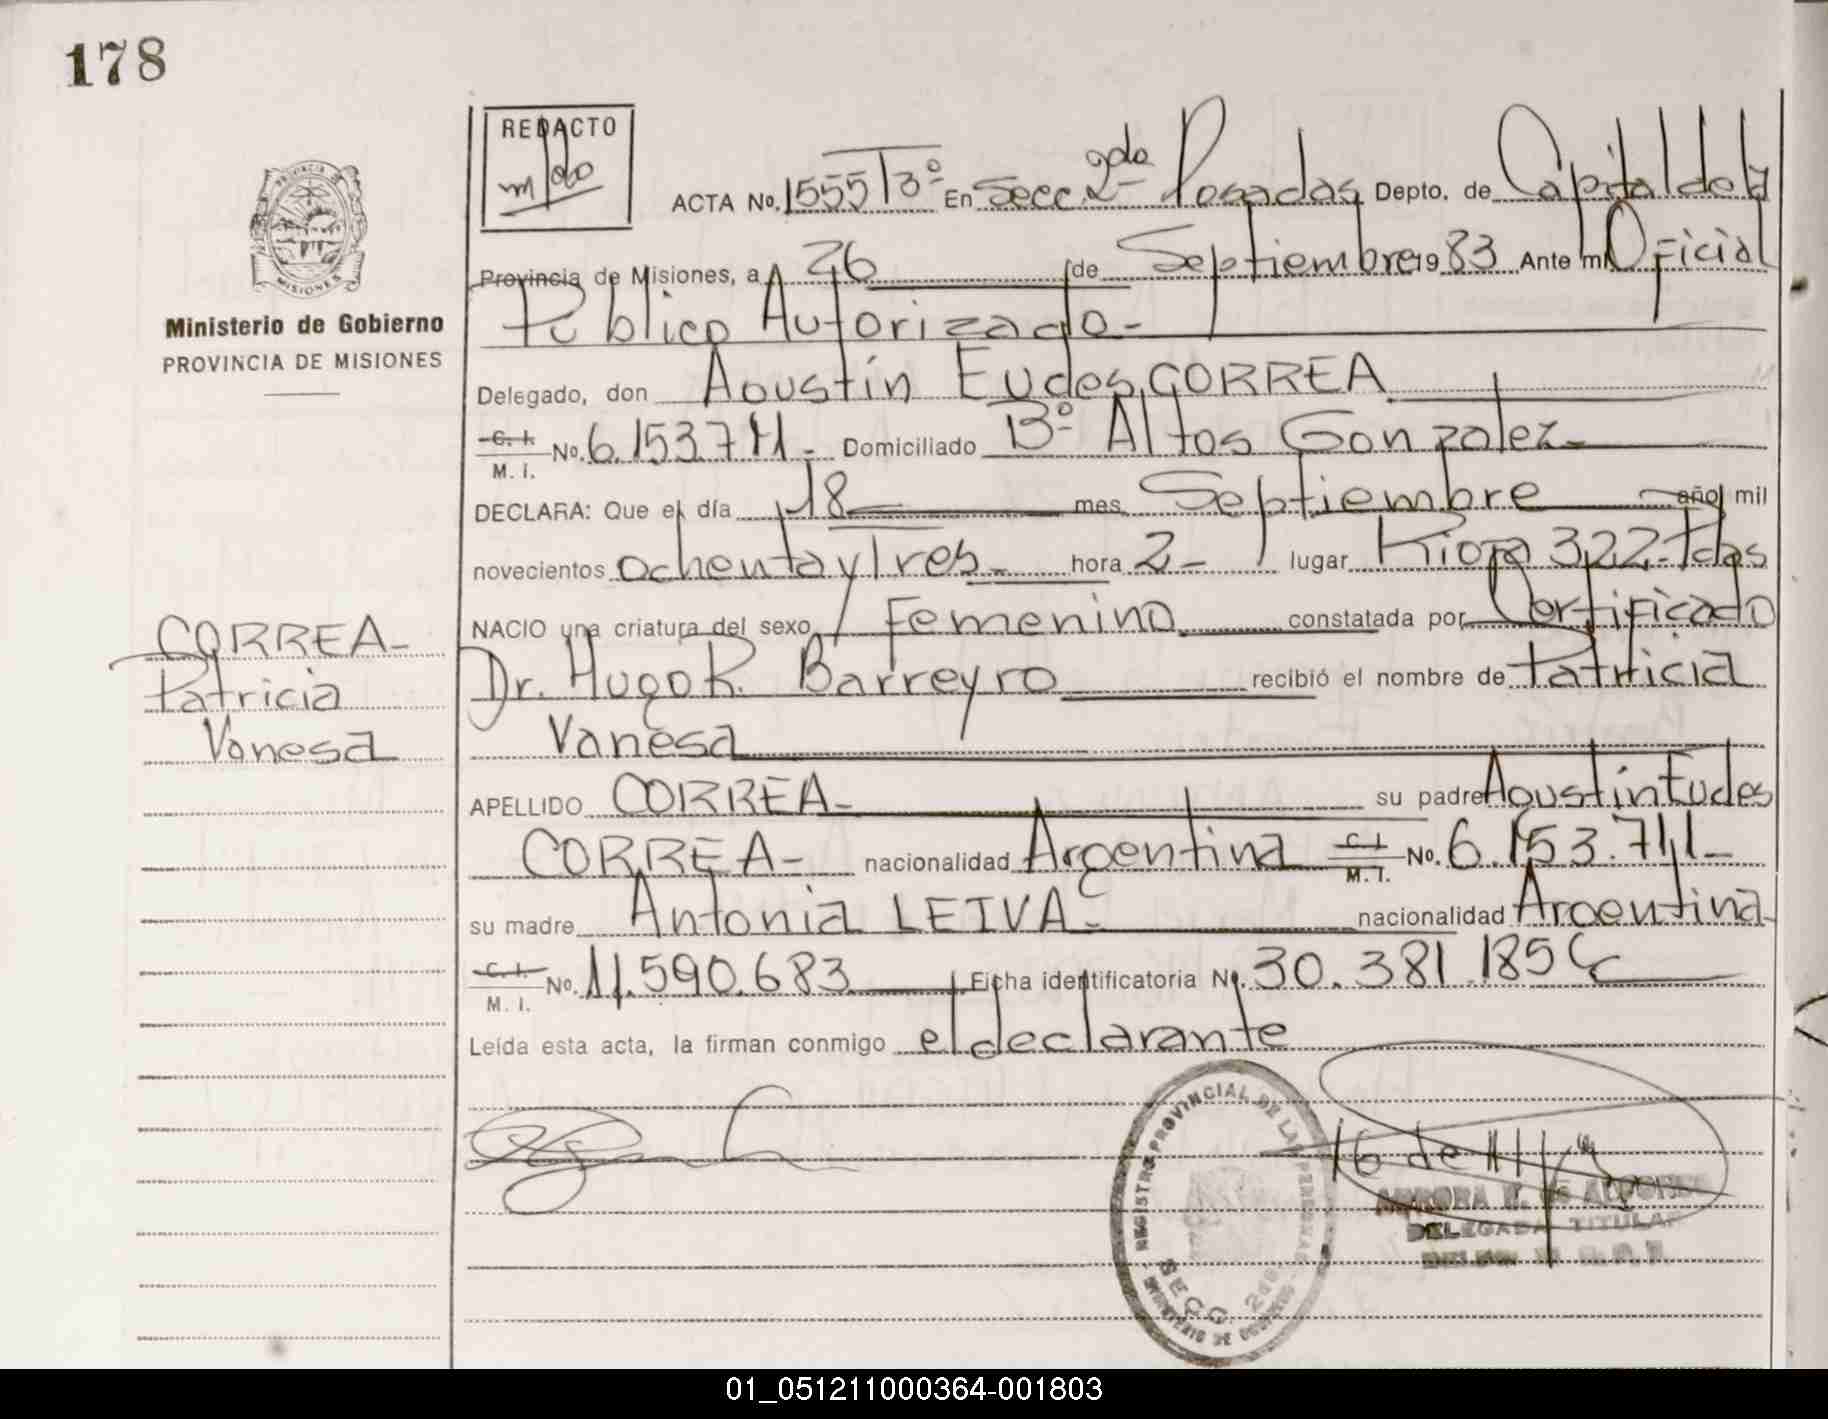 178
REDACTO
ACTA No. 1555 T3º En Secc. 2da Posadas Depto. de Capital de la
Provincia de Misiones, a 26 de Septiembre 1983 Ante mi Oficial
Publico Autorizado-
Ministerio de Gobierno
PROVINCIA DE MISIONES
Delegado, don Agustín Eudes CORREA
C. I. M. I. No. 6.153.711- Domiciliado Bº Altos Gonzalez-
DECLARA: Que el día 18 mes Septiembre año mil
novecientos ochenta y Tres- hora 2- lugar Rioja 322-Pdas
NACIO una criatura del sexo Femenino constatada por Certificado
Dr. Hugo R. Barreyro recibió el nombre de Patricia
Vanesa
CORREA-
Patricia
Vanesa
APELLIDO CORREA- su padre Agustin Eudes
CORREA- nacionalidad Argentina C. I. M. I. No. 6.153.711-
su madre Antonia LEIVA- nacionalidad Argentina-
C. I. M. I. No. 11.590.683 Ficha identificatoria Nº. 30.381.185
Leída esta acta, la firman conmigo el declarante
REGISTRO PROVINCIAL DE LAS PERSONAS
SECC. 2da
MINISTERIO DE GOBIERNO
DELEGADA TITULAR
01_051211000364-001803